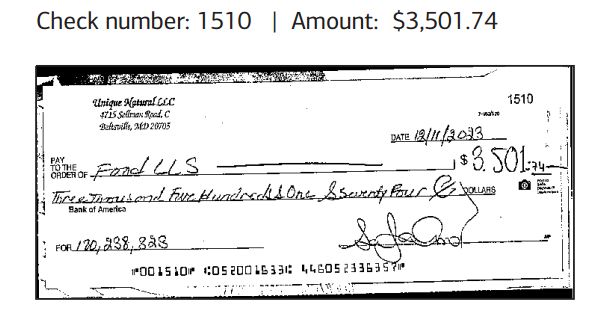 Check number: 1510 | Amount: $3,501.74
1510
Unique Natural LLC
4715 Sellman Road, C
Beltsville, MD 20705
DATE 12/11/2023
PAY
TO THE
ORDER OF Fond LLS
$ 3,501.74
Three Thousand Five Hundred & One & Seventy Four
DOLLARS
Bank of America
FOR 120, 238, 323
⑈001510⑈ ⑆052001633⑆ 446052336357⑈